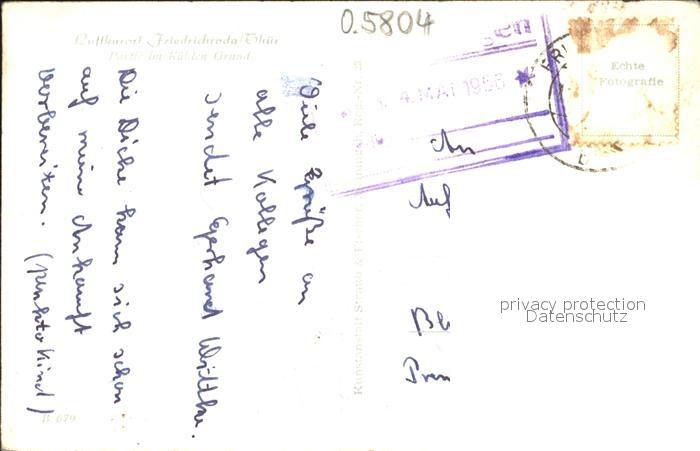 0.5804
Luftkurort Friedrichroda/Thür
Partie im Kühlen Grund
Viele Grüße an
alle Kollegen
sendet Gerhard Wittke.
Die Dicke kann sich schon
auf meine Ankunft
vorbereiten.
B 679
Kunstanstalt Straub & Fischer
4. MAI 1956
Echte
Fotografie
An
Auf
Be
Pren
privacy protection
Datenschutz